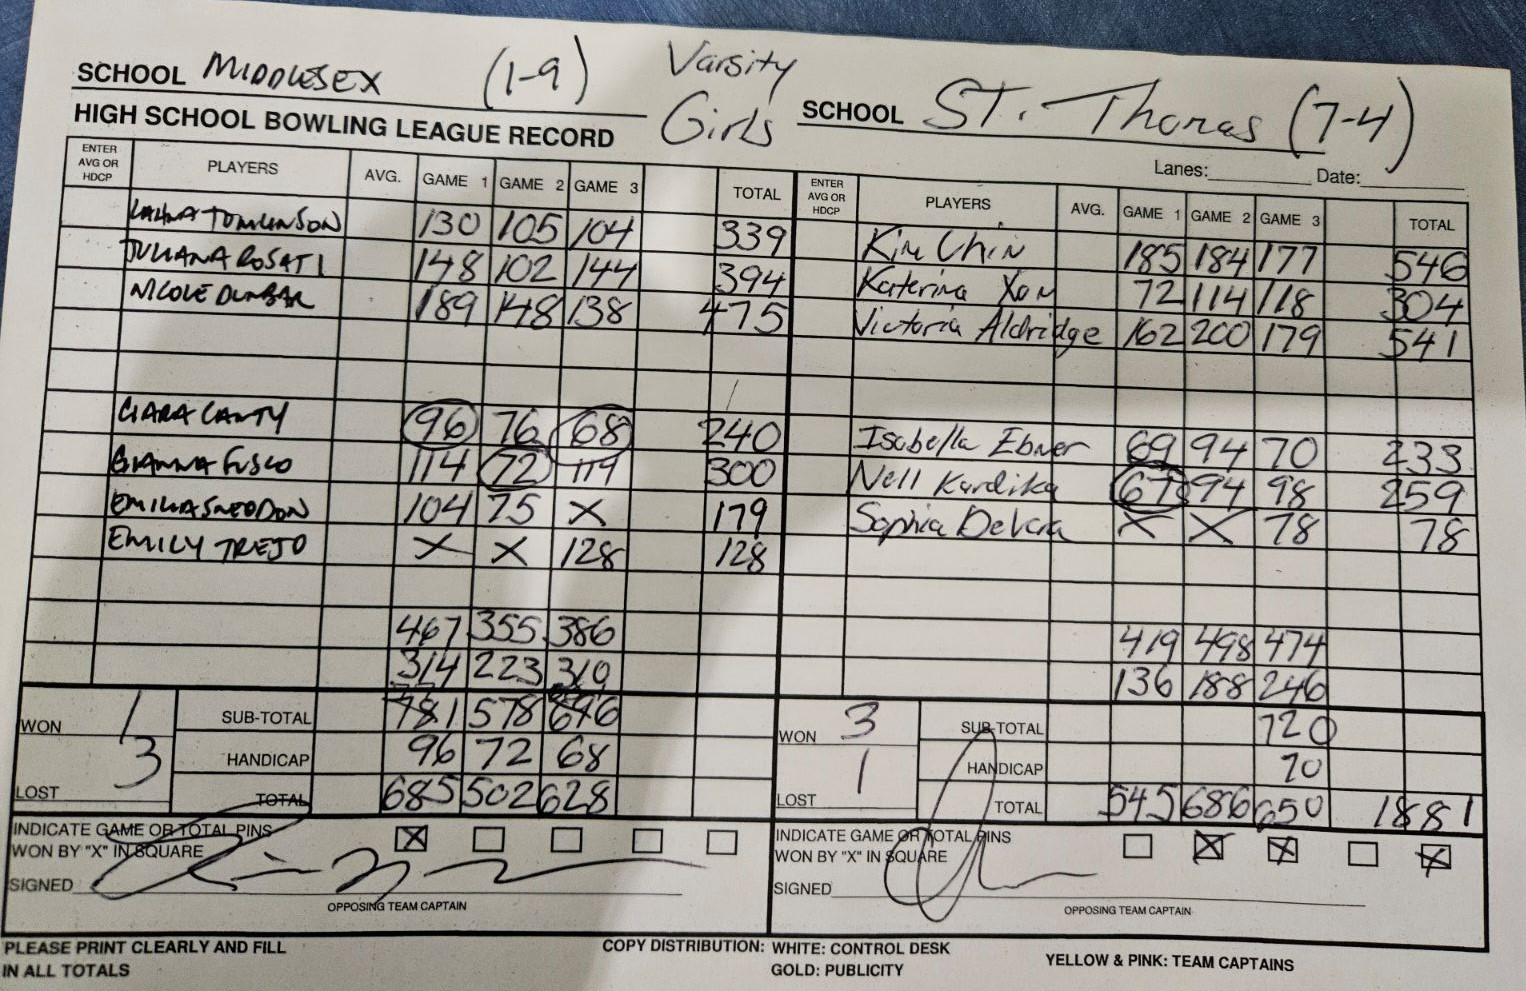 SCHOOL MIDDLESEX (1-9) Varsity Girls SCHOOL ST. Thomas (7-4)
HIGH SCHOOL BOWLING LEAGUE RECORD
Lanes: Date:
ENTER AVG OR HDCP PLAYERS AVG. GAME 1 GAME 2 GAME 3 TOTAL
TOMLINSON 130 105 104 339
JULIANA ROSATI 148 102 144 394
NICOLE DUNBAR 189 148 138 475
CIARA CANTY 96 76 68 240
GIANNA FUSCO 114 72 119 300
EMILIA SNEDDON 104 75 X 179
EMILY TREJO X X 128 128
467 355 386
314 223 310
WON 1 SUB-TOTAL 781 578 696
HANDICAP 96 72 68
LOST 3 TOTAL 685 502 628
INDICATE GAME OR TOTAL PINS
WON BY "X" IN SQUARE X
SIGNED
OPPOSING TEAM CAPTAIN
ENTER AVG OR HDCP PLAYERS AVG. GAME 1 GAME 2 GAME 3 TOTAL
Kim Chin 185 184 177 546
Katerina 72 114 118 304
Victoria Aldridge 162 200 179 541
Isabella Ebner 69 94 70 233
Nell Kardika 67 94 98 259
Sophia X X 78 78
419 498 474
136 188 246
WON 3 SUB-TOTAL 720
HANDICAP 70
LOST 1 TOTAL 545 686 650 1881
INDICATE GAME OR TOTAL PINS
WON BY "X" IN SQUARE X X X
SIGNED
OPPOSING TEAM CAPTAIN
PLEASE PRINT CLEARLY AND FILL
IN ALL TOTALS
COPY DISTRIBUTION: WHITE: CONTROL DESK
GOLD: PUBLICITY
YELLOW & PINK: TEAM CAPTAINS